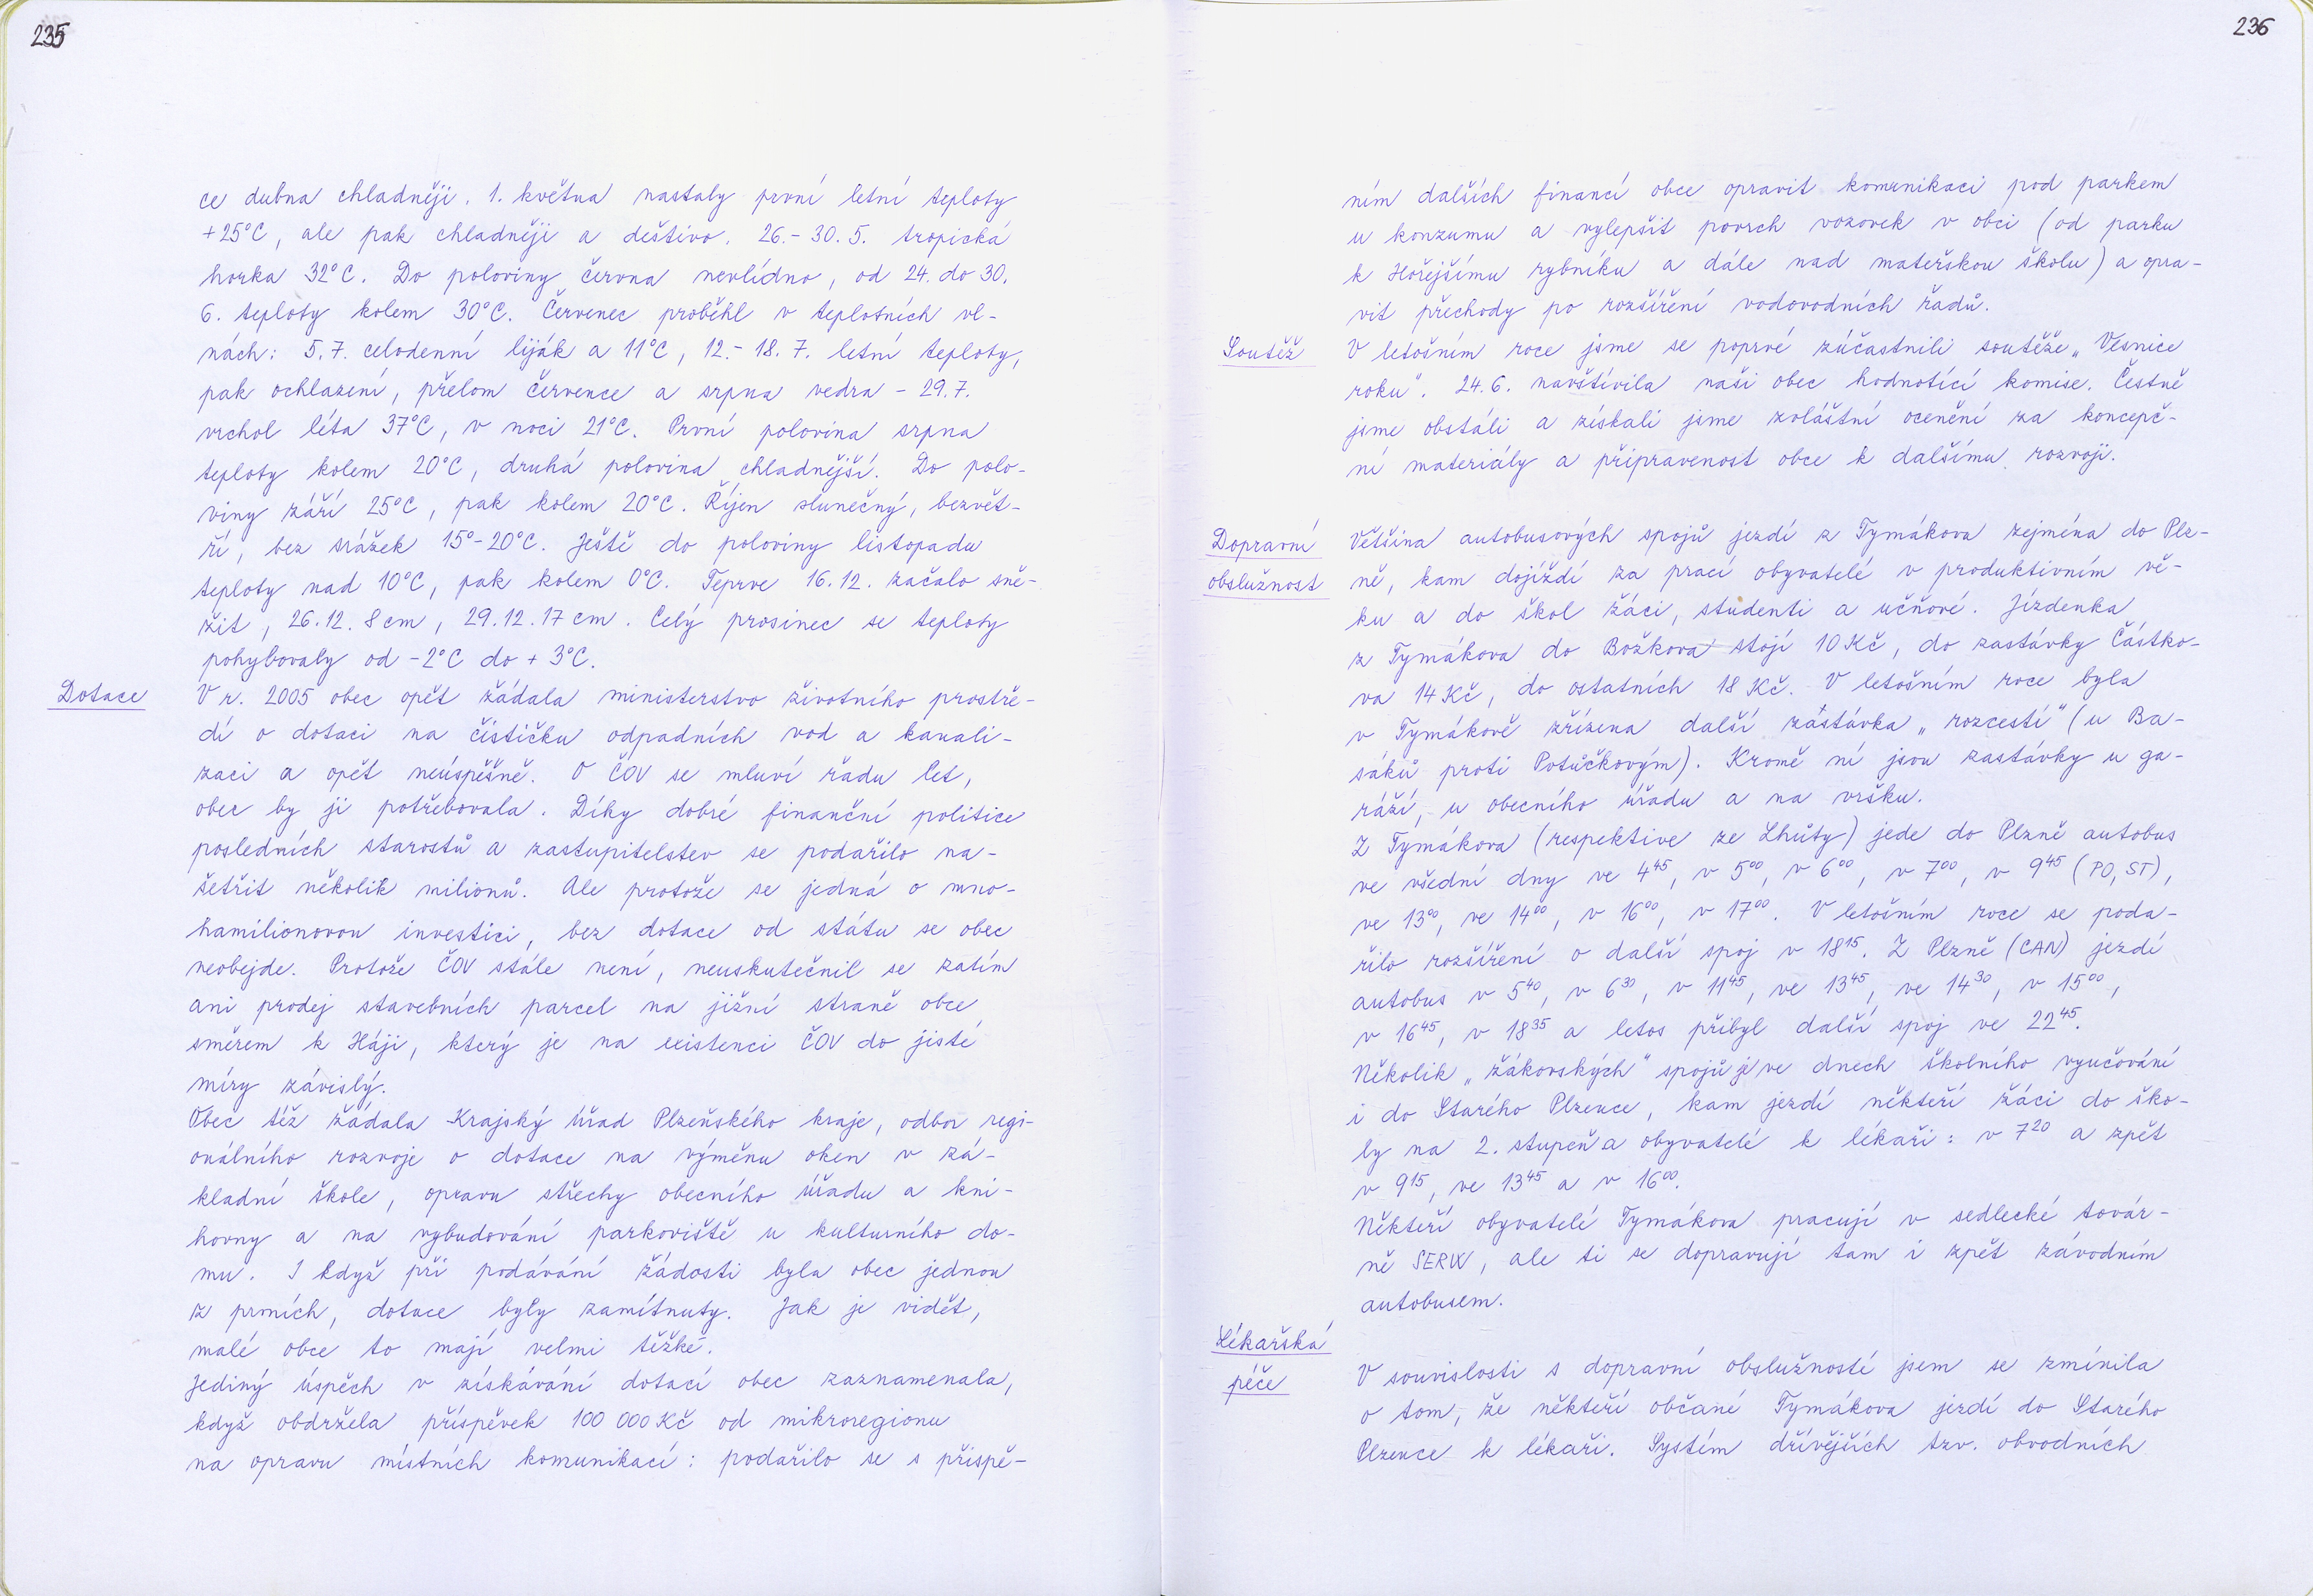 235
ce dubna chladněji. 1. května nastaly první letní teploty
+25°C, ale pak chladněji a deštivo. 26.- 30. 5. tropická
horka 32°C. Do poloviny června nevlídno, od 24. do 30.
6. teploty kolem 30°C. Červenec proběhl v teplotních vl-
nách: 5. 7. celodenní liják a 11°C, 12.- 18. 7. letní teploty,
pak ochlazení, přelom července a srpna vedra - 29. 7.
vrchol léta 37°C, v noci 21°C. První polovina srpna
teploty kolem 20°C, druhá polovina chladnější. Do polo-
viny září 25°C, pak kolem 20°C. Říjen slunečný, bezvět-
ří, bez srážek 15°-20°C. Ještě do poloviny listopadu
teploty nad 10°C, pak kolem 0°C. Teprve 16. 12. začalo sně-
žit, 26. 12. 8 cm, 29. 12. 17 cm. Celý prosinec se teploty
pohybovaly od -2°C do + 3°C.
Dotace
V r. 2005 obec opět žádala ministerstvo životního prostře-
dí o dotaci na čističku odpadních vod a kanali-
zaci a opět neúspěšně. O ČOV se mluví řadu let,
obec by ji potřebovala. Díky dobré finanční politice
posledních starostů a zastupitelstev se podařilo na-
šetřit několik milionů. Ale protože se jedná o mno-
hamilionovou investici, bez dotace od státu se obec
neobejde. Protože ČOV stále není, neuskutečnil se zatím
ani prodej stavebních parcel na jižní straně obce
směrem k Háji, který je na existenci ČOV do jisté
míry závislý.
Obec též žádala Krajský úřad Plzeňského kraje, odbor regi-
onálního rozvoje o dotace na výměnu oken v zá-
kladní škole, opravu střechy obecního úřadu a kni-
hovny a na vybudování parkoviště u kulturního do-
mu. I když při podávání žádosti byla obec jednou
z prvních, dotace byly zamítnuty. Jak je vidět,
malé obce to mají velmi těžké.
Jediný úspěch v získávání dotací obec zaznamenala,
když obdržela příspěvek 100 000 Kč od mikroregionu
na opravu místních komunikací: podařilo se s přispě-
236
ním dalších financí obce opravit komunikaci pod parkem
u konzumu a vylepšit povrch vozovek v obci (od parku
k Hořejšímu rybníku a dále nad mateřskou školu) a opra-
vit přechody po rozšíření vodovodních řadů.
Soutěž
V letošním roce jsme se poprvé zúčastnili soutěže „Vesnice
roku". 24. 6. navštívila naši obec hodnotící komise. Čestně
jsme obstáli a získali jsme zvláštní ocenění za koncepč-
ní materiály a připravenost obce k dalšímu rozvoji.
Dopravní
obslužnost
Většina autobusových spojů jezdí z Tymákova zejména do Plz-
ně, kam dojíždí za prací obyvatelé v produktivním vě-
ku a do škol žáci, studenti a učňové. Jízdenka
z Tymákova do Božkova stojí 10 Kč, do zastávky Částko-
va 14 Kč, do ostatních 18 Kč. V letošním roce byla
v Tymákově zřízena další zastávka „rozcestí" (u Ba-
sáků proti Potůčkovým). Kromě ní jsou zastávky u ga-
ráží, u obecního úřadu a na vršku.
Z Tymákova (respektive ze Lhůty) jede do Plzně autobus
ve všední dny ve 4⁴⁵, v 5⁰⁰, v 6⁰⁰, v 7⁰⁰, v 9⁴⁵ (PO, ST),
ve 13⁰⁰, ve 14⁰⁰, v 16⁰⁰, v 17⁰⁰. V letošním roce se poda-
řilo rozšíření o další spoj v 18¹⁵. Z Plzně (CAN) jezdí
autobus v 5⁴⁰, v 6³⁰, v 11⁴⁵, ve 13⁴⁵, ve 14³⁰, v 15⁰⁰,
v 16⁴⁵, v 18³⁵ a letos přibyl další spoj ve 22⁴⁵.
Několik „žákovských" spojů je ve dnech školního vyučování
i do Starého Plzence, kam jezdí někteří žáci do ško-
ly na 2. stupeň a obyvatelé k lékaři: v 7²⁰ a zpět
v 9¹⁵, ve 13⁴⁵ a v 16⁰⁰.
Někteří obyvatelé Tymákova pracují v sedlecké továr-
ně SERW, ale ti se dopravují tam i zpět závodním
autobusem.
Lékařská
péče
V souvislosti s dopravní obslužností jsem se zmínila
o tom, že někteří občané Tymákova jezdí do Starého
Plzence k lékaři. Systém dřívějších tzv. obvodních